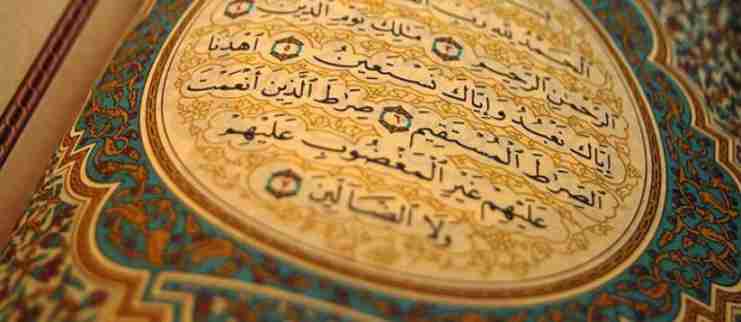 ٱلْحَمْدُ لِلَّهِ رَبِّ
ٱلرَّحْمَٰنِ ٱلرَّحِيمِ ٣ مَٰلِكِ يَوْمِ ٱلدِّينِ ٤
إِيَّاكَ نَعْبُدُ وَإِيَّاكَ نَسْتَعِينُ ٥ ٱهْدِنَا
ٱلصِّرَٰطَ ٱلْمُسْتَقِيمَ ٦ صِرَٰطَ ٱلَّذِينَ أَنْعَمْتَ
عَلَيْهِمْ غَيْرِ ٱلْمَغْضُوبِ عَلَيْهِمْ
وَلَا ٱلضَّآلِّينَ ٧